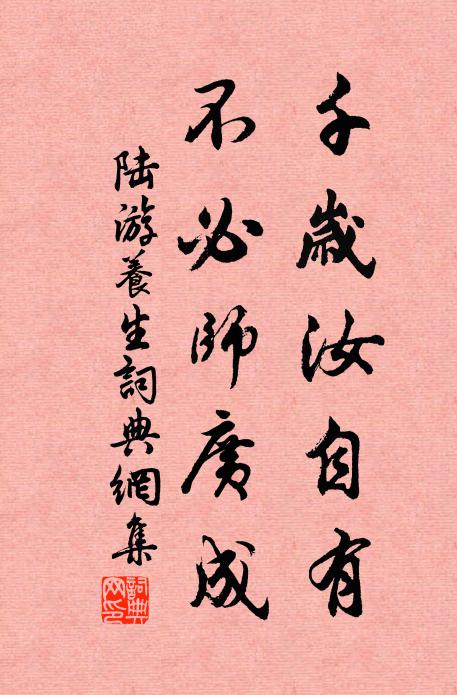 千歲汝自有
不必師廣成
陸游養生詞典網集
詞典
网印